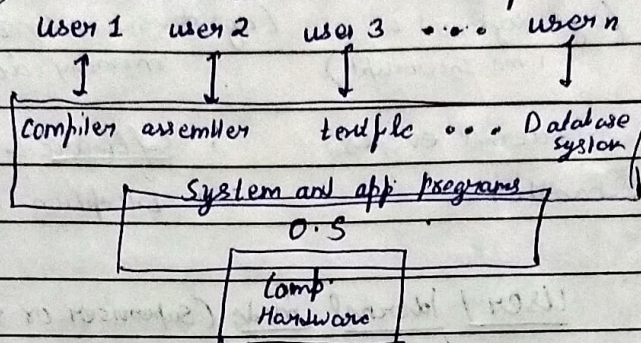 user 1 user 2 user 3 .... user n
Compiler assembler ... Database
System
System and app. programs
O.S
Comp.
Hardware